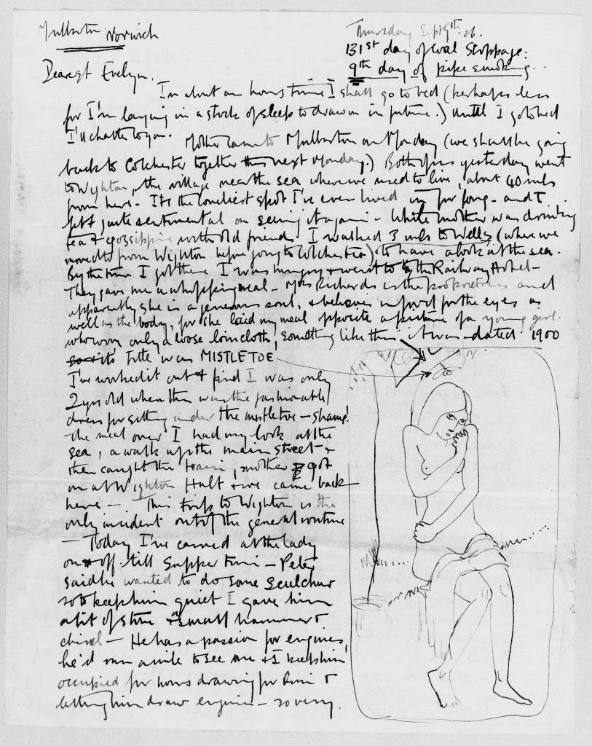 Mulbarton Norwich
Thursday Sept 9th. 26.
131st day of Coal Stoppage.
9th day of pipe smoking.
Dearest Evelyn.
In about an hours time I shall go to bed (perhaps less
for I'm laying in a stock of sleep to draw on in future.) Until I go to bed
I'll chatter to you. Mother came to Mulbarton on Monday (we shall be going
back to Colchester together next Monday.) Both of us yesterday went
to Wighton, the village near the sea where we used to live, about 40 mls
from here. It's the loneliest spot I've ever lived in for long - and I
felt quite sentimental on seeing it again - While mother was drinking
tea & gossipping with old friends I walked 3 mls to Wells (where we
moved to from Wighton before going to Colchester) to have a look at the sea.
By the time I got there I was hungry & went to the Railway Hotel -
They gave me a whopping meal - Mrs Richards is the proprietress and
apparently she is a generous soul, & believes in food for the eyes as
well as the body, for she laid my meal opposite a picture of a young girl
who wore only a loose loincloth, something like this it was - dated 1900
its title was MISTLETOE
I've worked it out & find I was only
2 yrs old when this was the fashionable
dress for sitting under the mistletoe - shame.
The meal over I had my look at the
sea, a walk up the main street &
then caught the train, mother got
on at Wighton Halt & we came back
here - This trip to Wighton is the
only incident out of the general routine
- Today I've carved at the lady
on & off till supper time - Peter
said he wanted to do some sculcher
so to keep him quiet I gave him
a bit of stone & small hammer &
chisel - He has a passion for engines,
he'd run a mile to see one & I keep him
occupied for hours drawing for him &
letting him draw engines -